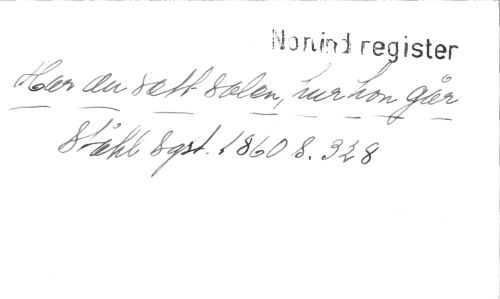 Nonind register
Har du sett solen, hur hon går
Ståhl Sgst. 1860 s. 328